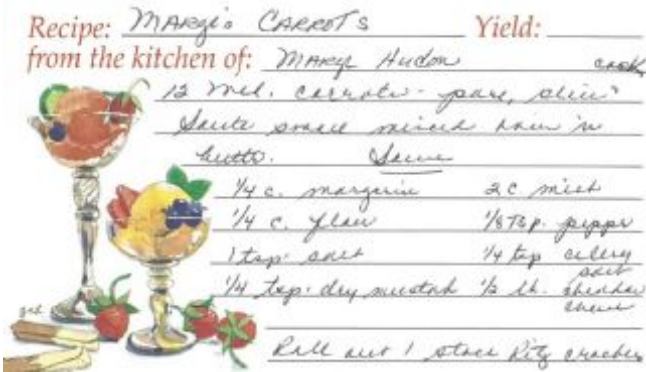 Recipe: Margi's CARROTS Yield:
from the kitchen of: Marge Hudon cook
12 Med. carrots - pare, slice
Saute small minced onion in
butter. Sauce
1/4 c. margarin 2 c milk
1/4 c. flour 1/8 Tsp. pepper
1 tsp. salt 1/4 tsp celery salt
1/4 tsp. dry mustard 1/2 lb. cheddar cheese
Roll out 1 stack Ritz crackers